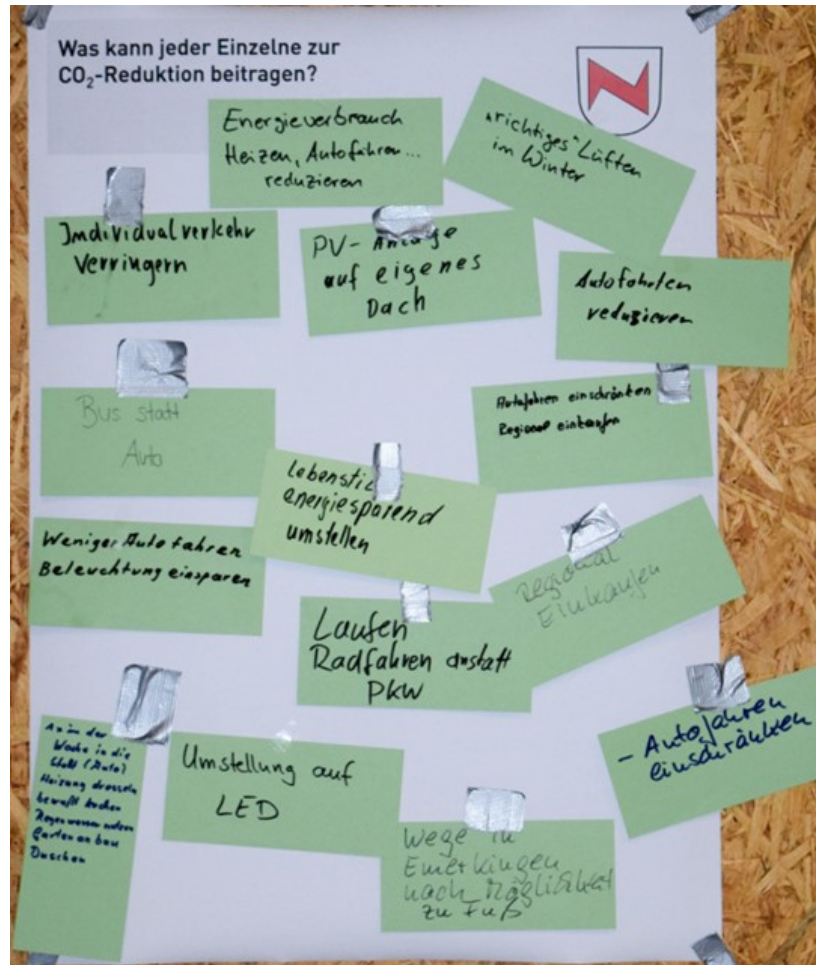 Was kann jeder Einzelne zur
CO₂-Reduktion beitragen?
Energieverbrauch
Heizen, Autofahren...
reduzieren
"richtiges" Lüften
im Winter
Individualverkehr
Verringern
PV-Anlage
auf eigenes
Dach
Autofahrten
reduzieren
Bus statt
Auto
Autofahren einschränken
Regional einkaufen
Lebenstil
energiesparend
umstellen
Weniger Auto fahren
Beleuchtung einsparen
Regional
Einkaufen
Laufen
Radfahren anstatt
PKW
- Autofahren
einschränken
in der
Woche in die
Stadt (Auto)
Heizung drosseln
bewußt kochen
Regenwasser nutzen
Gartenanbau
Duschen
Umstellung auf
LED
Wege in
Emerkingen
nach Möglichkeit
zu Fuß